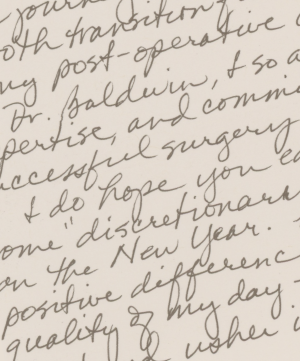 journ
oth transition
my post-operative
Dr. Baldwin, I so a
pertise, and commi
uccessful surgery
I do hope you e
ome "discretionar
on the New Year.
positive differenc
quality of my day-
usher i